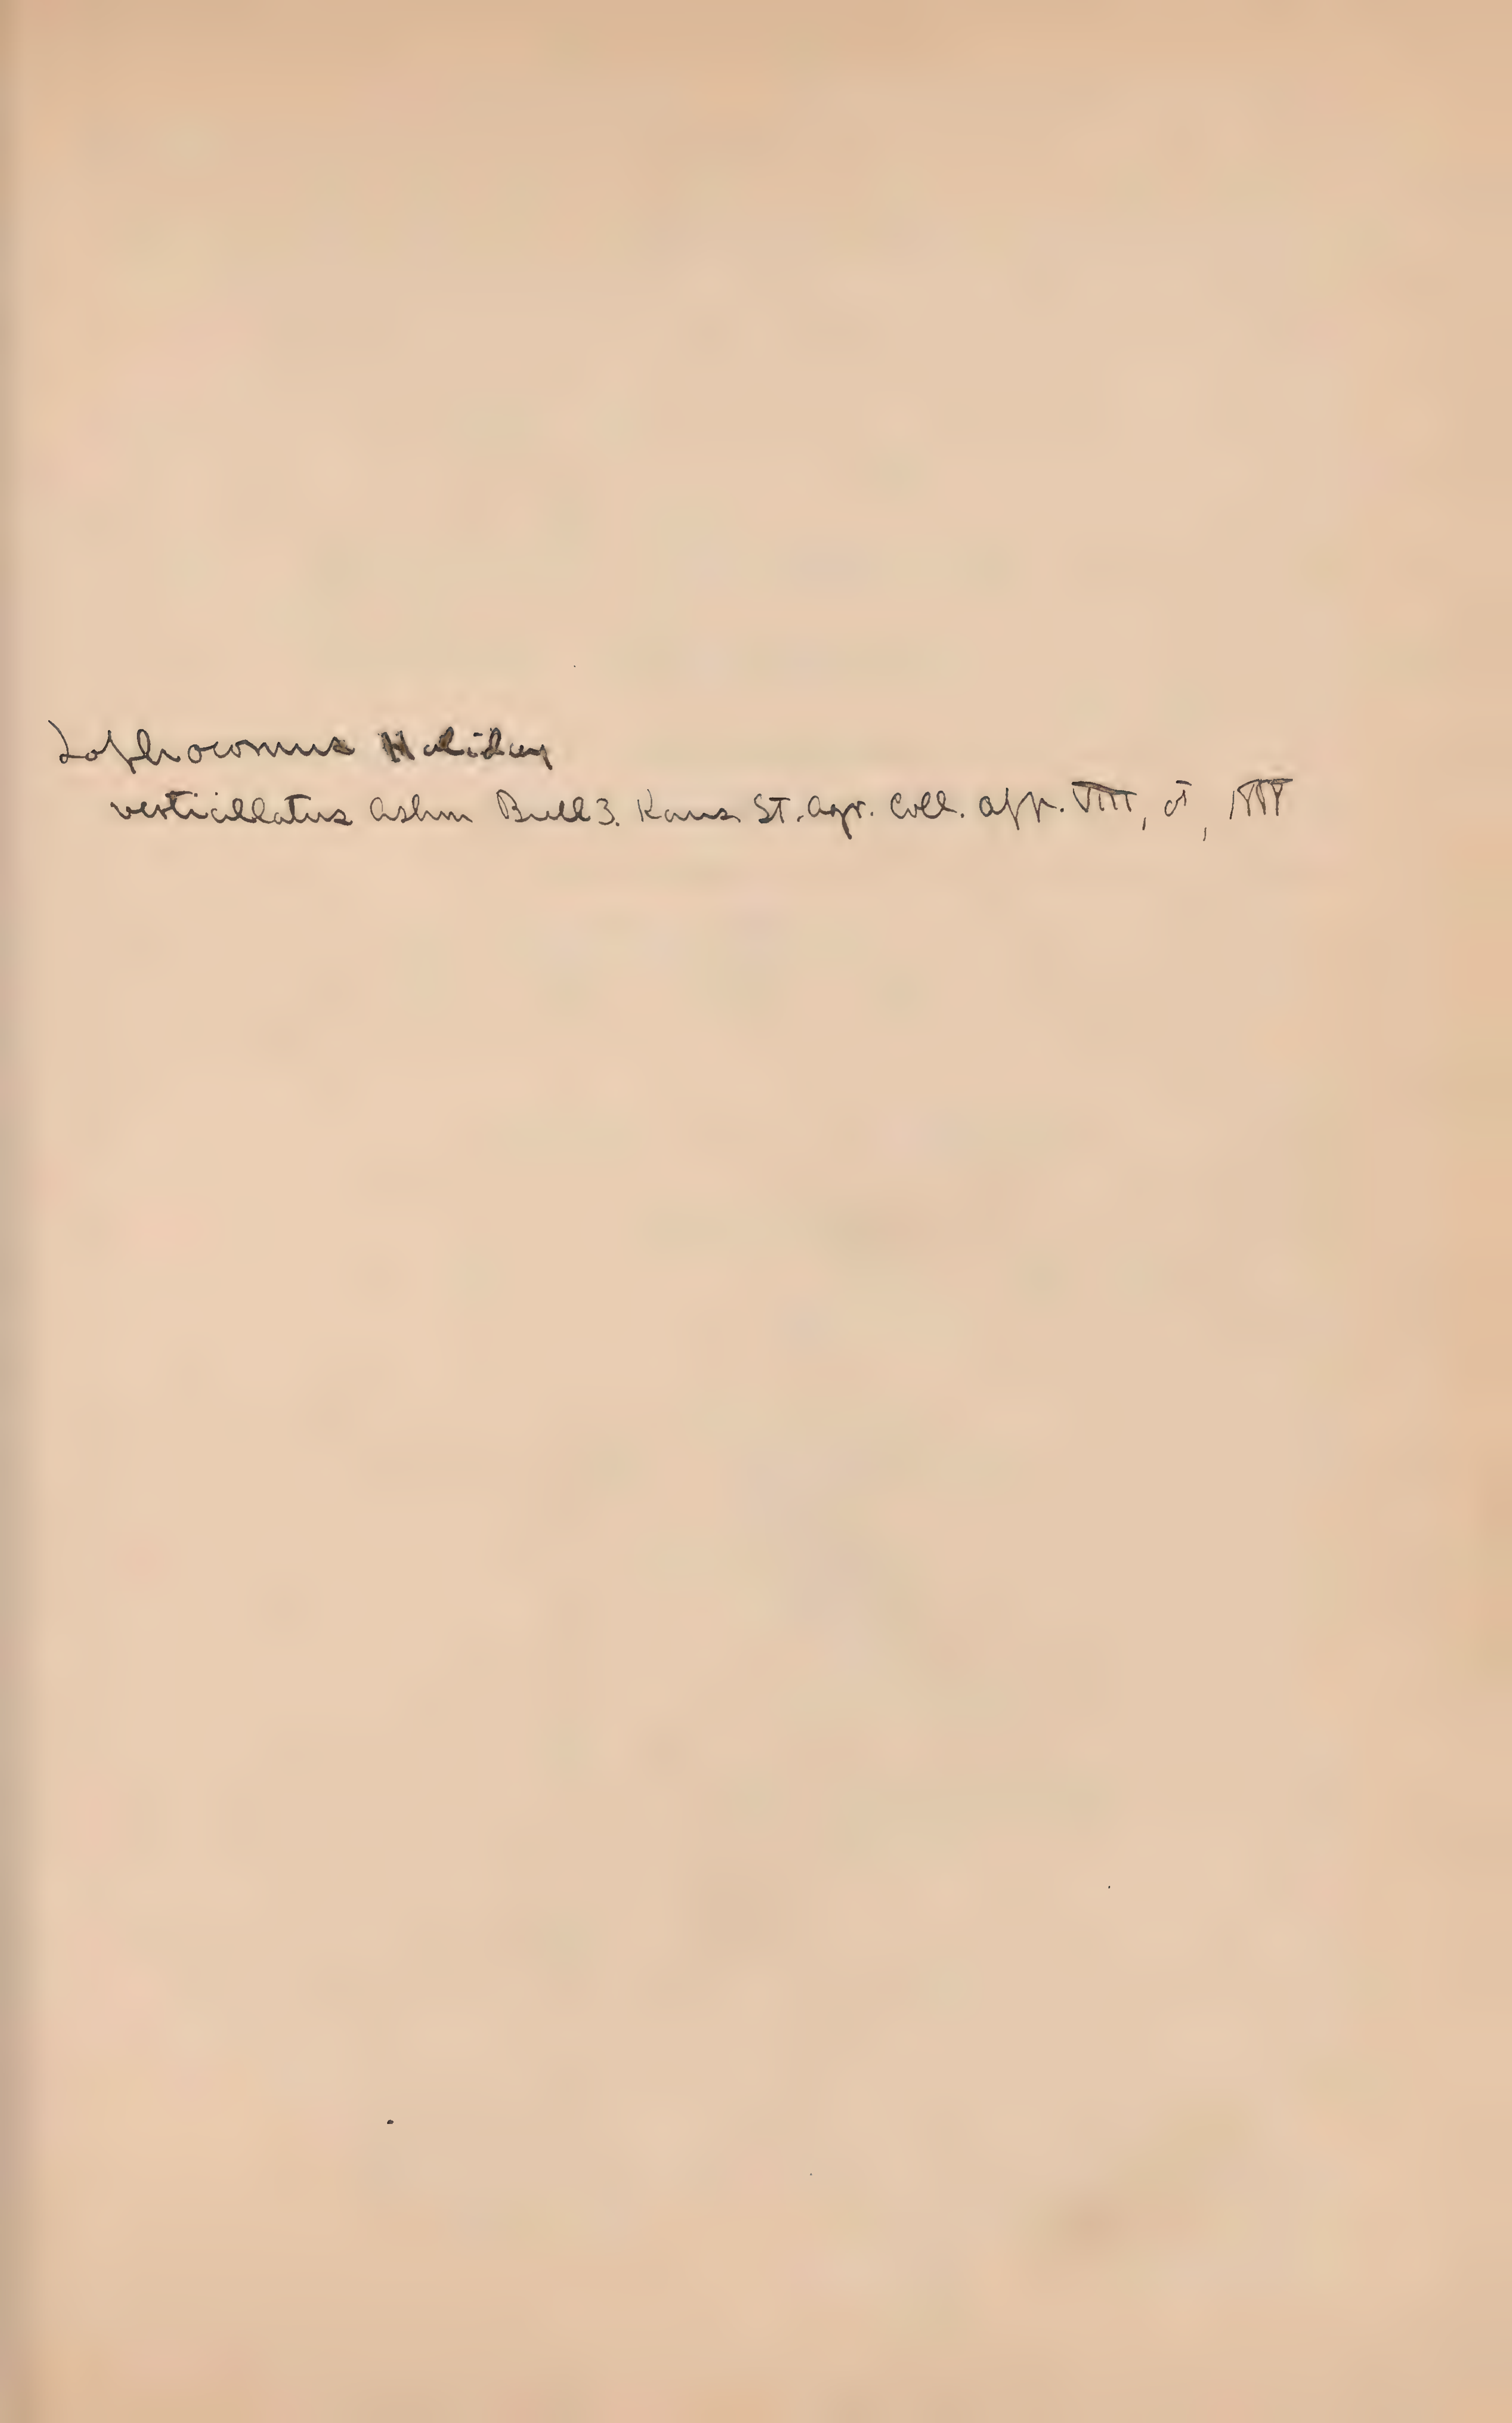 Lophocomus Haliday
verticillatus Ashm Bull 3. Kans St. Agr. Coll. App. VIII, ♂, 1888